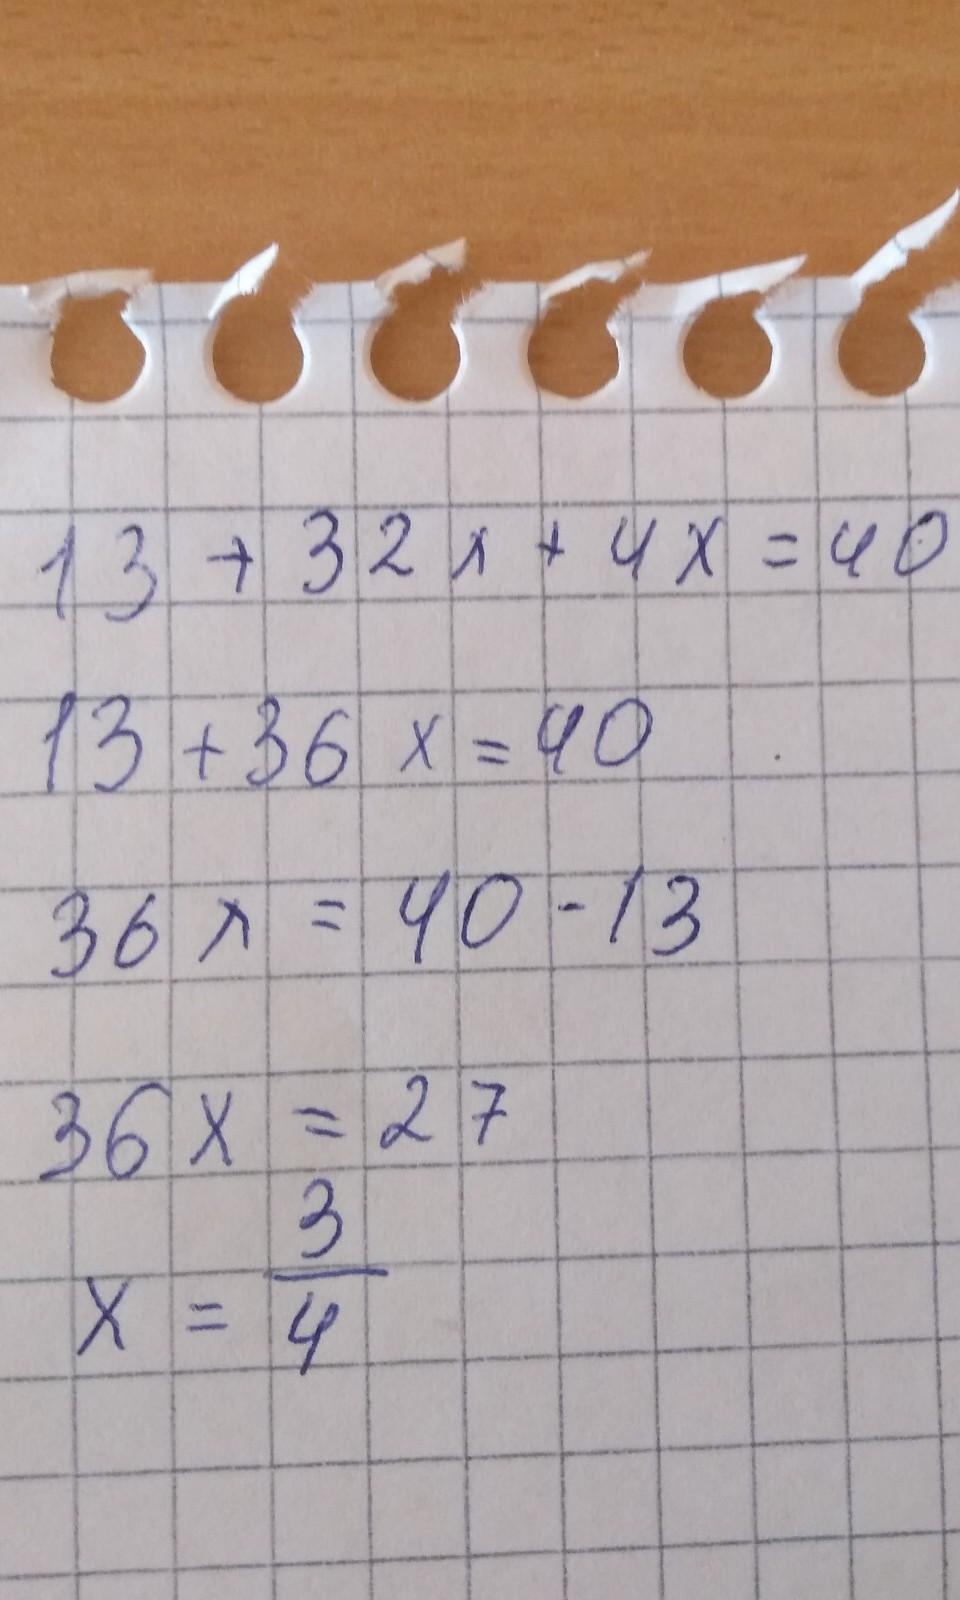 13 + 32x + 4x = 40
13 + 36x = 40
36x = 40 - 13
36x = 27
x = 3/4